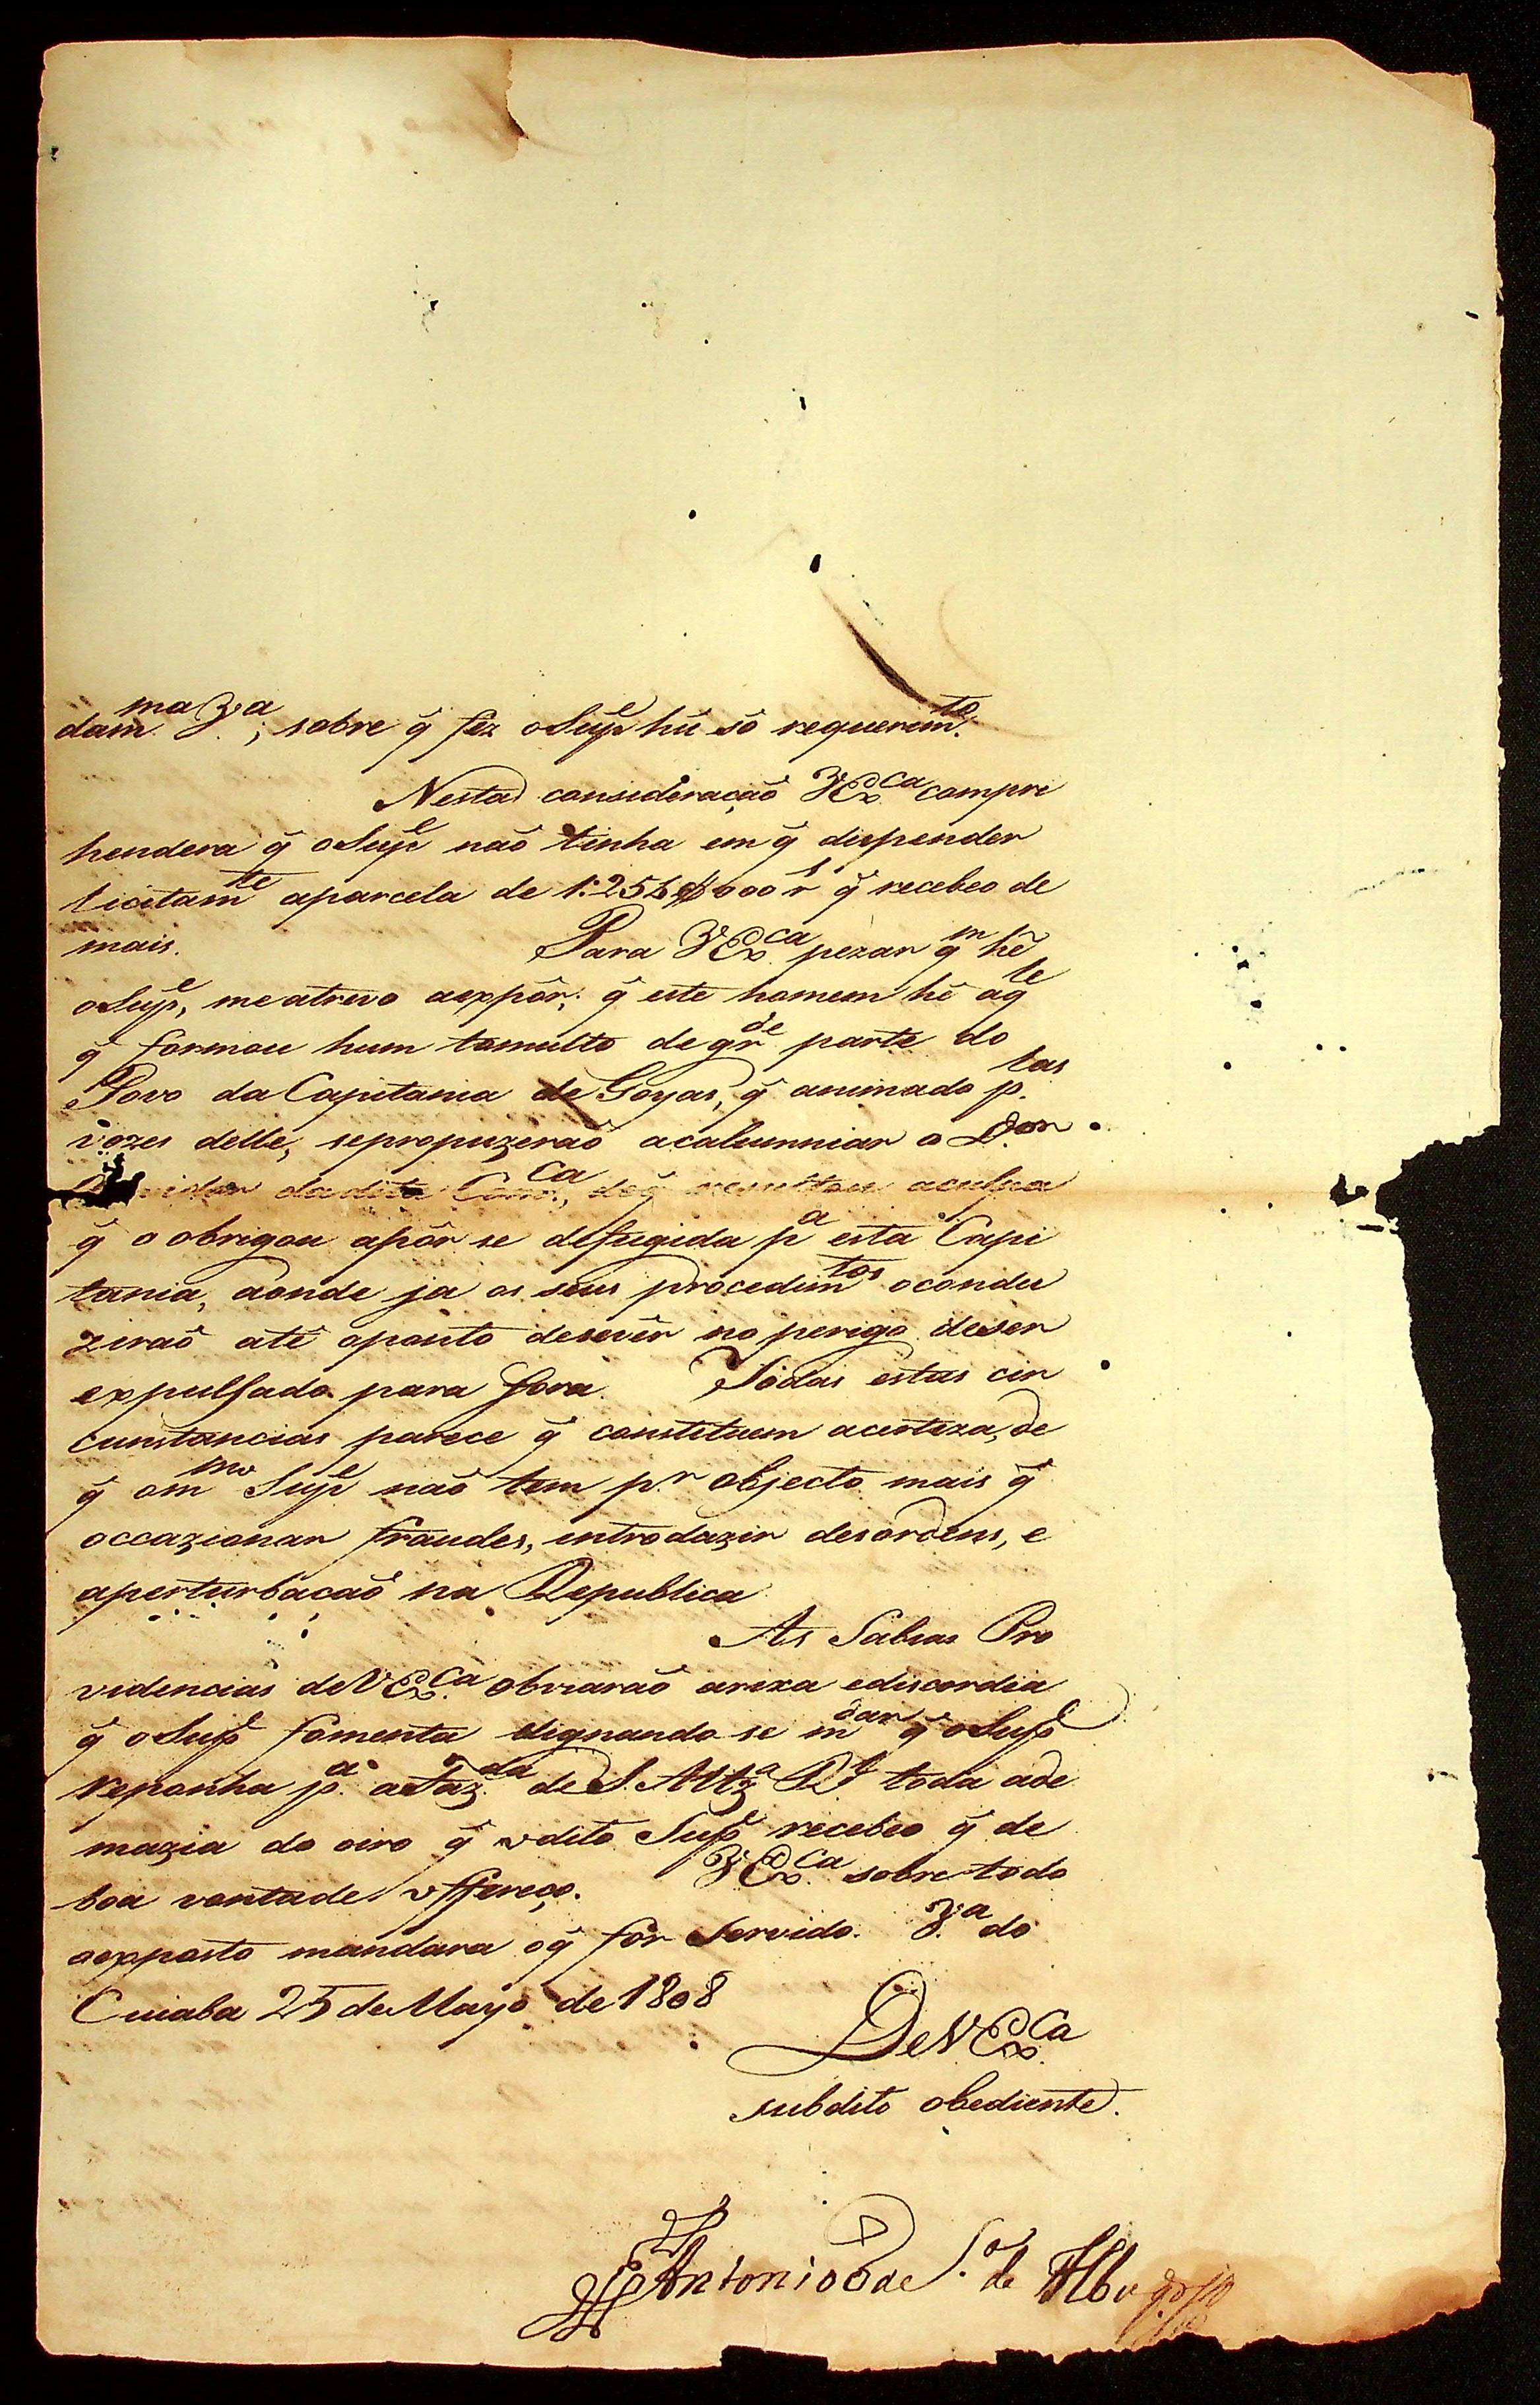 dam.ma V.a, sobre q̃ fez oSupe hũ só requerimto.
Nesta consideração VExca compre
hendera q̃ oSupe não tinha em q̃ dispender
licitamte aparcela de 1:256$000rs q̃ recebeo de
mais. Para VExca pezar qm hé
oSupe, meatrevo aexpôr; q̃ este homem hé aqle
q̃ formou hum tomulto de grde parte do
Povo da Capitania de Goyas, q̃ animado p.las
vozes delle, sepropuzeraõ acalumniar o D.or
vidor dadita Comca, deq̃ resultou aculpa
q̃ o obrigou apôr se defugida pa esta Capi
tania, aonde ja os seus procedimtos ocondu
ziraõ até oponto desevêr no perigo deser
expulsado para fora. Todas estas cir
cunstancias parece q̃ constetuem acerteza, de
q̃ ommo Supe naõ tem p.r objecto mais q̃
occazionar fraudes, introduzir desordens, e
aperturbacaõ na Republica
As Sabias Pro
videncias deVEx.ca obviaraõ arixa ediscordia
q̃ oSupe fomenta dignando se mdar q̃ oSupe
reponha p.a aFaz.da deS. Altza Rl toda ade
mazia do oiro q̃ odito Supe recebeo q̃ de
boa vontade offereço. VEx.ca sobre todo
oexposto mandara oq̃ fôr Servido. V.a do
Cuiaba 25 deMayo de 1808
DeVEx.ca
subdito obediente.
Antonio de S.a de Albuq